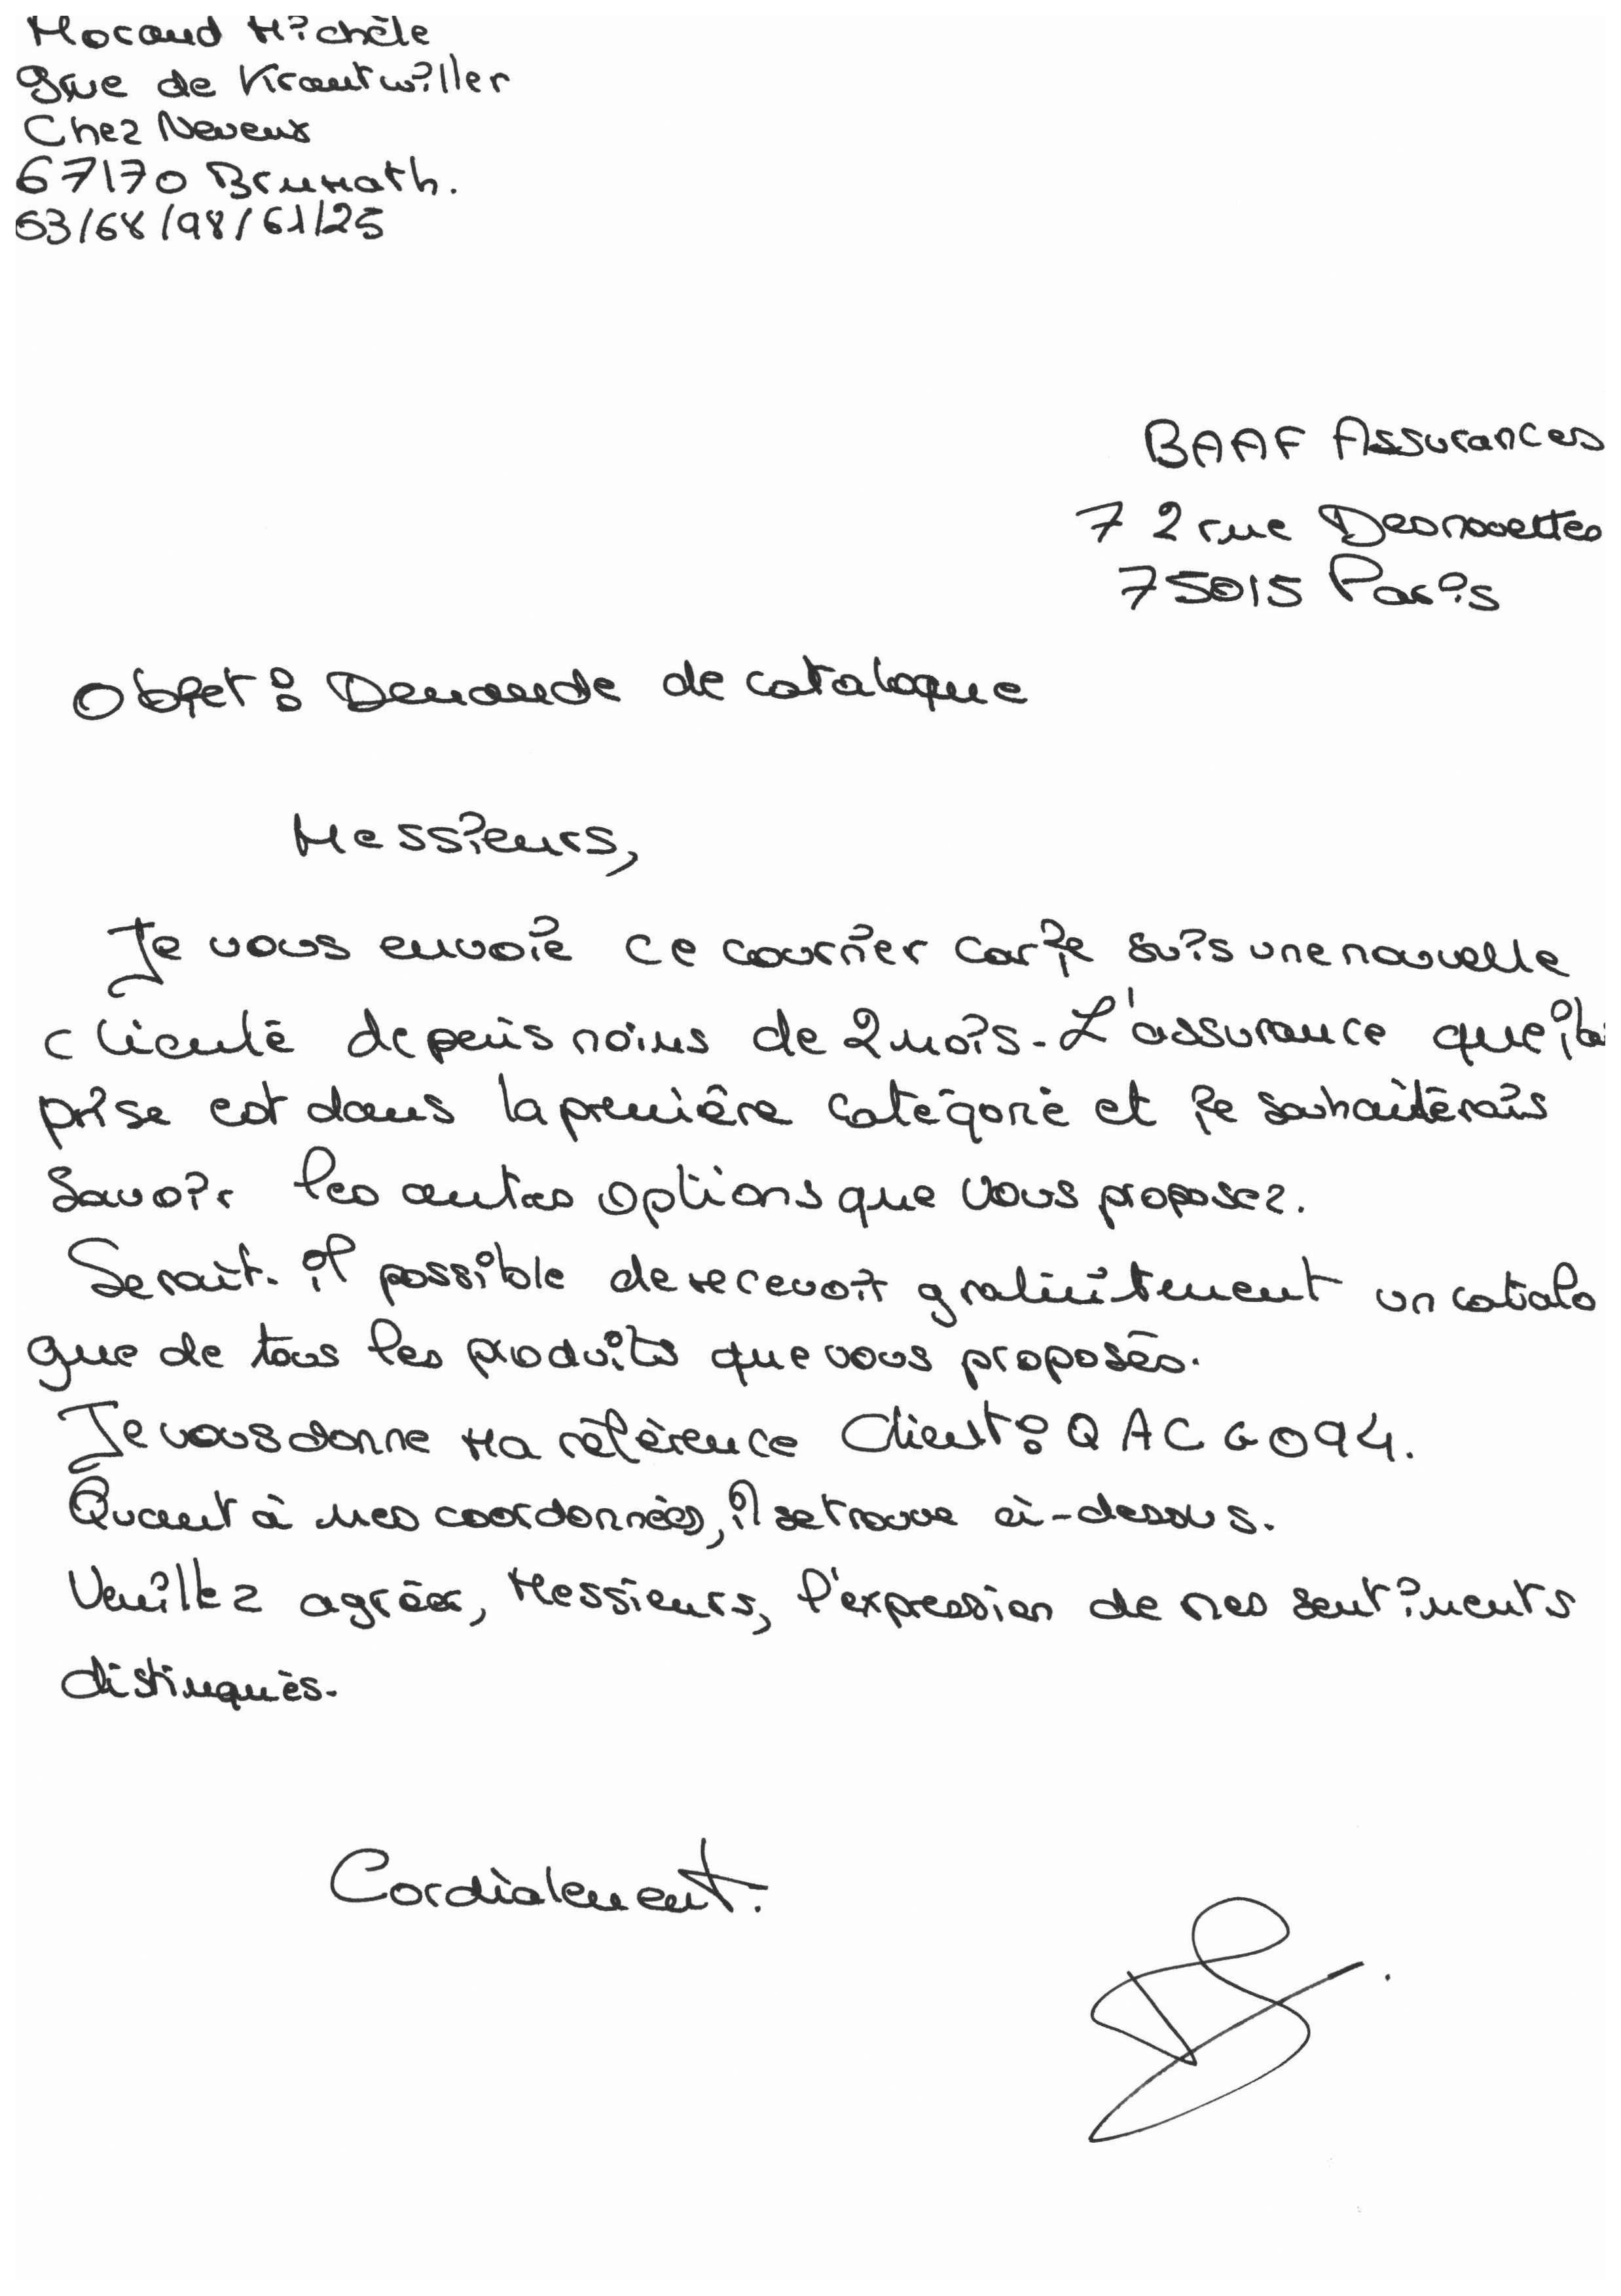 Mocaud Michèle
9 rue de Krautwiller
Chez Neveux
67170 Brumath.
63/68/98/61/25
BAAF Assurances
72 rue Desnouettes
75015 Paris
Objet : Demande de catalogue
Messieurs,
Je vous envoie ce courrier car je suis une nouvelle
clienté depuis moins de 2 mois. L'assurance que j'ai
prise est dans la première catégorie et je souhaiterais
savoir les autres options que vous proposez.
Serait-il possible de recevoir gratuitement un catalo
gue de tous les produits que vous proposés.
Je vous donne ma référence Client : QACGO94.
Quant à mes coordonnées, il se trouve ci-dessus.
Veuillez agréer, Messieurs, l'expression de mes sentiments
distingués.
Cordialement.